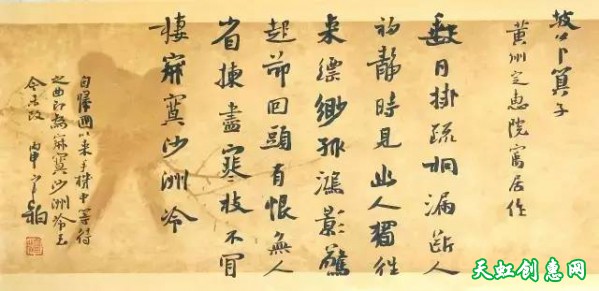 坡公卜算子
黄州定惠院寓居作
缺月掛疏桐漏斷人
初靜時見幽人獨往
來縹緲孤鴻影驚
起卻回頭有恨無人
省揀盡寒枝不肯
棲寂寞沙洲冷
自歸國以來手機中等待
之曲即為寂寞沙洲冷至
今未改 丙申
天虹创惠网